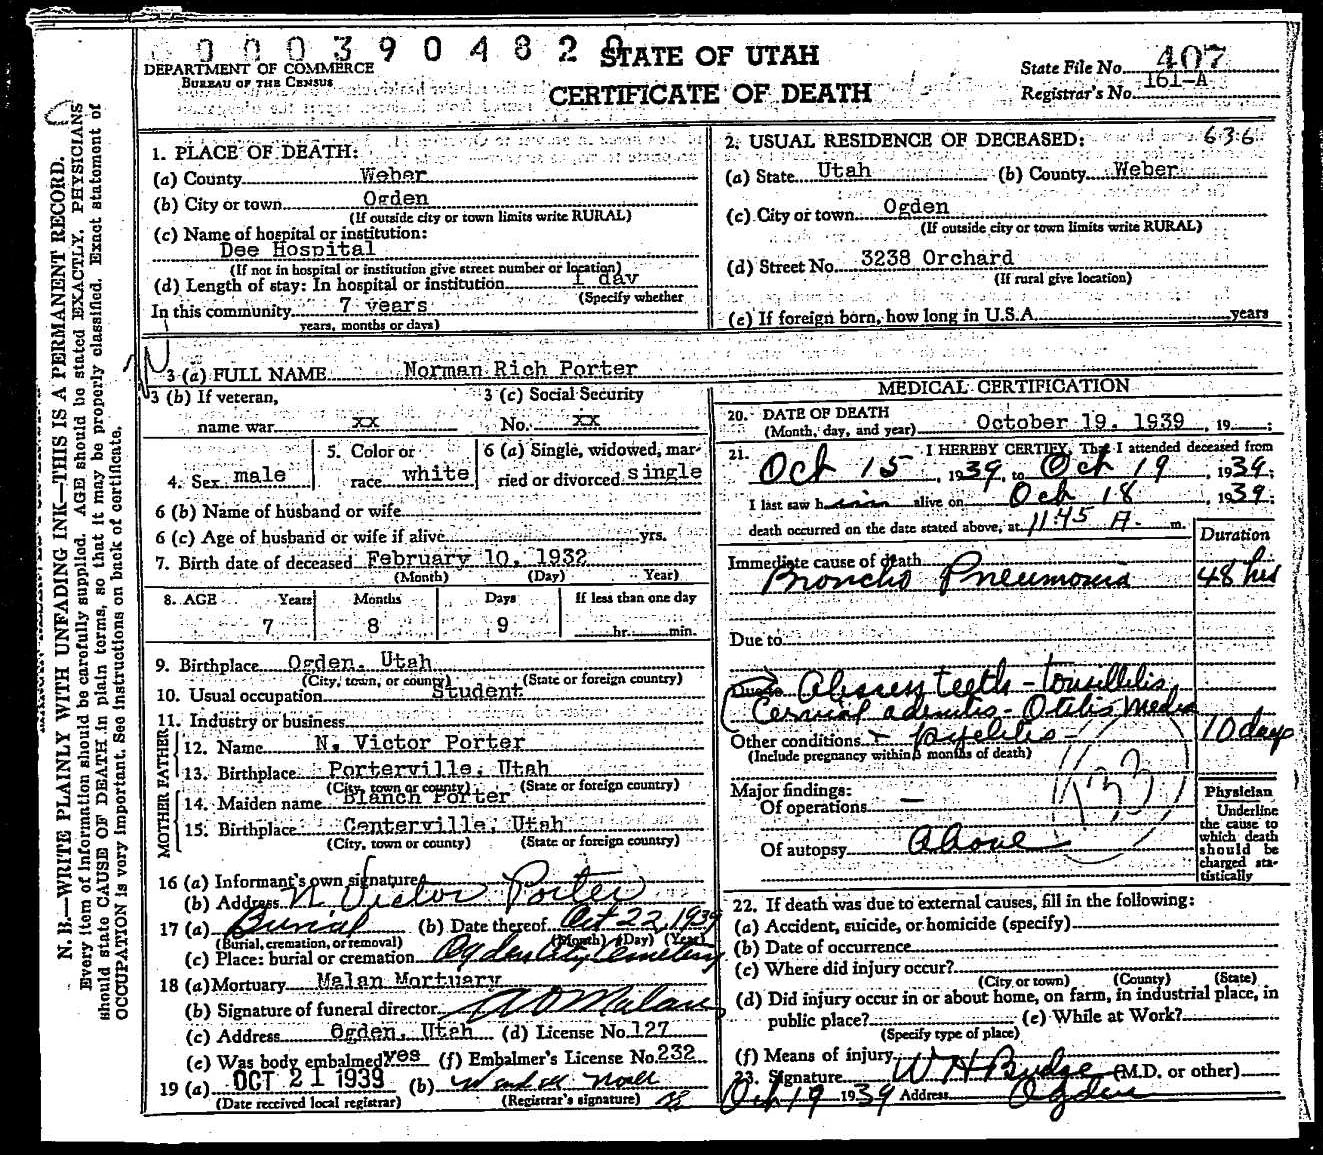 0003904820
STATE OF UTAH
CERTIFICATE OF DEATH
DEPARTMENT OF COMMERCE
BUREAU OF THE CENSUS
State File No. 407
Registrar's No. 161-A
N. B.—WRITE PLAINLY WITH UNFADING INK—THIS IS A PERMANENT RECORD.
Every item of information should be carefully supplied. AGE should be stated EXACTLY. PHYSICIANS
should state CAUSE OF DEATH in plain terms, so that it may be properly classified. Exact statement of
OCCUPATION is very important. See instructions on back of certificate.
1. PLACE OF DEATH:
(a) County Weber
(b) City or town Ogden
(If outside city or town limits write RURAL)
(c) Name of hospital or institution:
Dee Hospital
(If not in hospital or institution give street number or location)
(d) Length of stay: In hospital or institution 1 day
(Specify whether
In this community 7 years
years, months or days)
2. USUAL RESIDENCE OF DECEASED: 636
(a) State Utah (b) County Weber
(c) City or town Ogden
(If outside city or town limits write RURAL)
(d) Street No. 3238 Orchard
(If rural give location)
(e) If foreign born, how long in U.S.A. years
3 (a) FULL NAME Norman Rich Porter
3 (b) If veteran, name war xx
3 (c) Social Security No. xx
4. Sex male
5. Color or race white
6 (a) Single, widowed, married or divorced single
6 (b) Name of husband or wife
6 (c) Age of husband or wife if alive yrs.
7. Birth date of deceased February 10, 1932
(Month) (Day) Year)
8. AGE Years Months Days If less than one day
7 8 9 hr. min.
9. Birthplace Ogden, Utah
(City, town, or county) (State or foreign country)
10. Usual occupation Student
11. Industry or business
FATHER
12. Name N. Victor Porter
13. Birthplace Porterville, Utah
(City, town or county) (State or foreign country)
MOTHER
14. Maiden name Blanch Porter
15. Birthplace Centerville, Utah
(City, town or county) (State or foreign country)
16 (a) Informant's own signature N Victor Porter
(b) Address
17 (a) Burial (b) Date thereof Oct 22, 1939
(Burial, cremation, or removal) (Month) (Day) (Year)
(c) Place: burial or cremation Ogden City Cemetery
18 (a) Mortuary Malan Mortuary
(b) Signature of funeral director A D Malan
(c) Address Ogden, Utah (d) License No. 127
(e) Was body embalmed yes (f) Embalmer's License No. 232
19 (a) OCT 21 1939 (b)
(Date received local registrar) (Registrar's signature)
MEDICAL CERTIFICATION
20. DATE OF DEATH
(Month, day, and year) October 19, 1939, 19 ;
21. I HEREBY CERTIFY, That I attended deceased from
Oct 15, 1939, to Oct 19, 1939;
I last saw him alive on Oct 18, 1939;
death occurred on the date stated above, at 11:45 A. m.
Duration
Immediate cause of death
Broncho Pneumonia 48 hrs
Due to
Due to Abscess teeth - tonsillitis
Cervical adenitis - Otitis Media
Other conditions + pyelitis - 10 days
(Include pregnancy within 3 months of death)
Major findings:
Of operations —
Of autopsy Above
(133)
Physician
Underline
the cause to
which death
should be
charged sta-
tistically
22. If death was due to external causes, fill in the following:
(a) Accident, suicide, or homicide (specify)
(b) Date of occurrence
(c) Where did injury occur?
(City or town) (County) (State)
(d) Did injury occur in or about home, on farm, in industrial place, in
public place? (e) While at Work?
(Specify type of place)
(f) Means of injury
23. Signature W H Budge (M.D. or other)
Oct 19 1939 Address Ogden